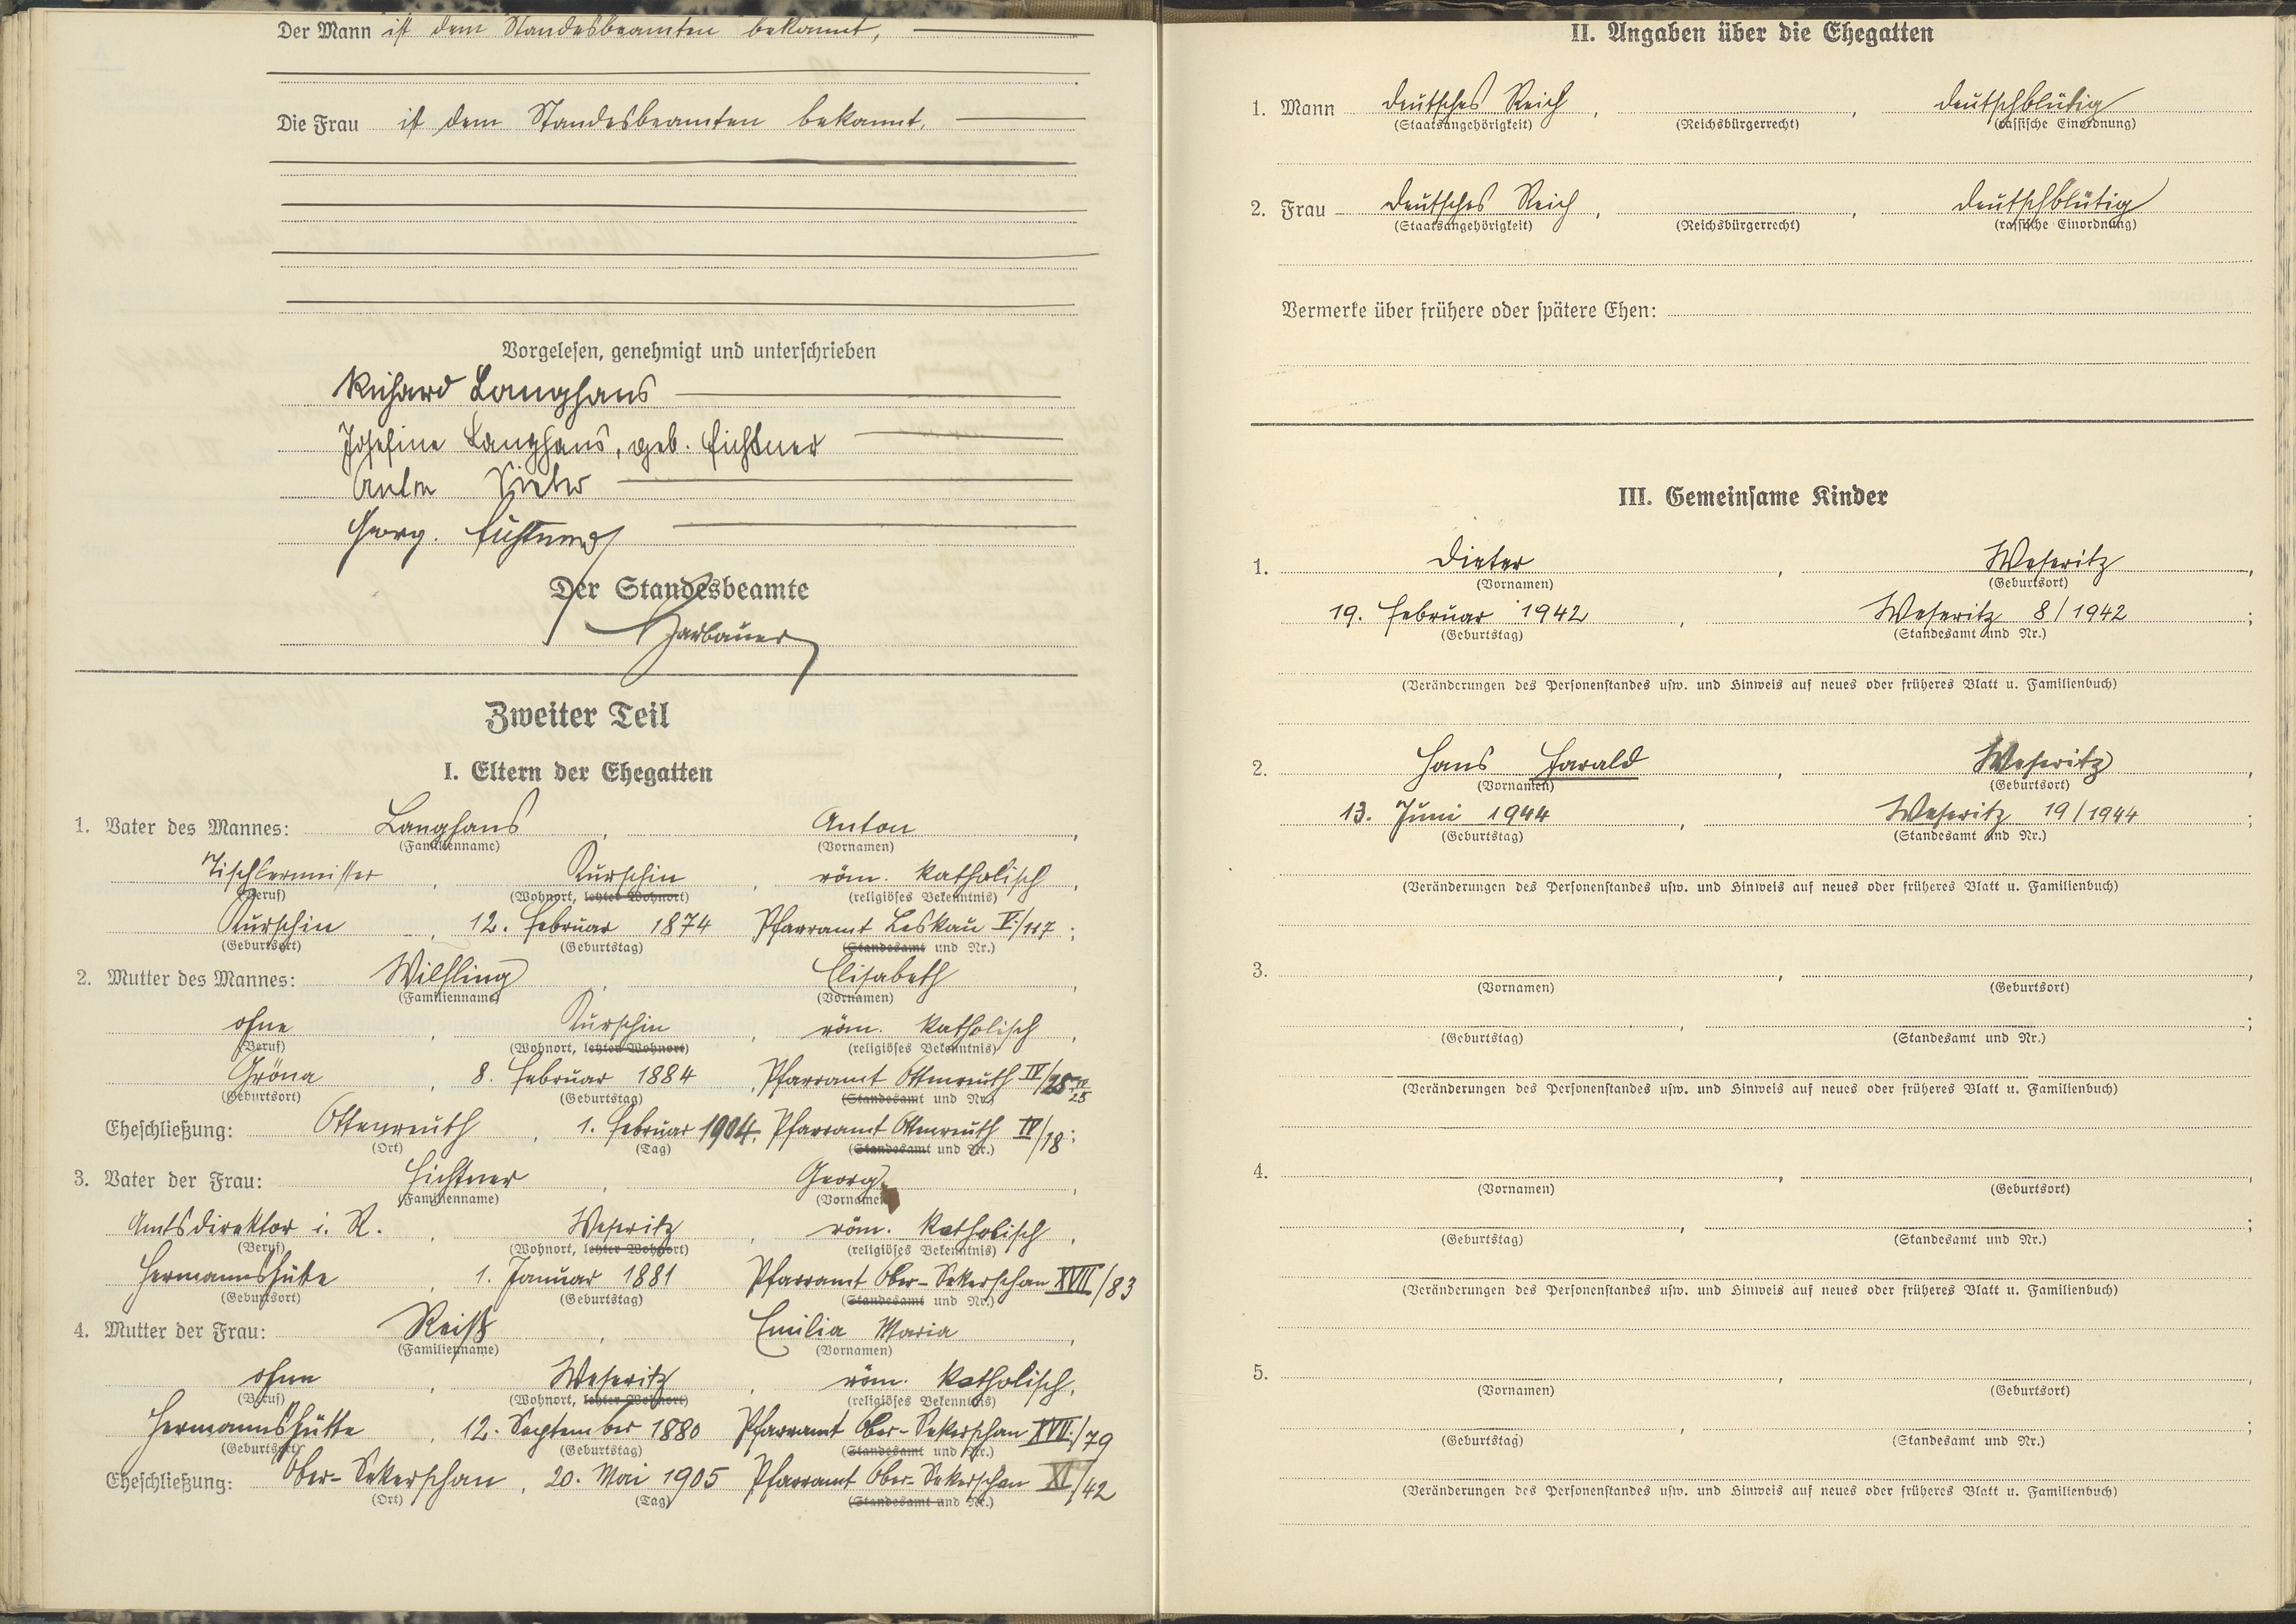 Der Mann ist dem Standesbeamten bekannt,
Die Frau ist dem Standesbeamten bekannt.
Vorgelesen, genehmigt und unterschrieben
Richard Langhans
Josefine Langhans, geb. Fichtner
Anton
Georg. Fichtner
Der Standesbeamte
Zweiter Teil
I. Eltern der Ehegatten
1. Vater des Mannes: Langhans, Anton,
(Familienname) (Vornamen)
Tischlermeister, Kurschin, röm. katholisch,
(Beruf) (Wohnort, letzter Wohnort) (religiöses Bekenntnis)
Kurschin, 12. Februar 1874 Pfarramt Leskau V./117;
(Geburtsort) (Geburtstag) (Standesamt und Nr.)
2. Mutter des Mannes: Wilfling, Elisabeth,
(Familienname) (Vornamen)
ohne, Kurschin, röm. katholisch,
(Beruf) (Wohnort, letzter Wohnort) (religiöses Bekenntnis)
Gröna, 8. Februar 1884, Pfarramt Ottenreuth IV/25
(Geburtsort) (Geburtstag) (Standesamt und Nr.)
Eheschließung: Ottenreuth, 1. Februar 1904, Pfarramt Ottenreuth IV/18;
(Ort) (Tag) (Standesamt und Nr.)
3. Vater der Frau: Fichtner, Georg,
(Familienname) (Vornamen)
Amtsdirektor i. R., Weseritz, röm. katholisch,
(Beruf) (Wohnort, letzter Wohnort) (religiöses Bekenntnis)
Hermannshütte, 1. Januar 1881 Pfarramt Ober-Sekerschan XVII/83
(Geburtsort) (Geburtstag) (Standesamt und Nr.)
4. Mutter der Frau: Reiß, Emilia Maria,
(Familienname) (Vornamen)
ohne, Weseritz, röm. katholisch,
(Beruf) (Wohnort, letzter Wohnort) (religiöses Bekenntnis)
Hermannshütte, 12. September 1880 Pfarramt Ober-Sekerschan XVII./79
(Geburtsort) (Geburtstag) (Standesamt und Nr.)
Eheschließung: Ober-Sekerschan, 20. Mai 1905 Pfarramt Ober-Sekerschan XI/42
(Ort) (Tag) (Standesamt und Nr.)
II. Angaben über die Ehegatten
1. Mann deutsches Reich, , deutschblütig
(Staatsangehörigkeit) (Reichsbürgerrecht) (rassische Einordnung)
2. Frau deutsches Reich, , deutschblütig
(Staatsangehörigkeit) (Reichsbürgerrecht) (rassische Einordnung)
Vermerke über frühere oder spätere Ehen:
III. Gemeinsame Kinder
1. Dieter, Weseritz,
(Vornamen) (Geburtsort)
19. Februar 1942, Weseritz 8/1942;
(Geburtstag) (Standesamt und Nr.)
(Veränderungen des Personenstandes usw. und Hinweis auf neues oder früheres Blatt u. Familienbuch)
2. Hans Harald, Weseritz,
(Vornamen) (Geburtsort)
13. Juni 1944, Weseritz 19/1944;
(Geburtstag) (Standesamt und Nr.)
(Veränderungen des Personenstandes usw. und Hinweis auf neues oder früheres Blatt u. Familienbuch)
3. , ,
(Vornamen) (Geburtsort)
, ;
(Geburtstag) (Standesamt und Nr.)
(Veränderungen des Personenstandes usw. und Hinweis auf neues oder früheres Blatt u. Familienbuch)
4. , ,
(Vornamen) (Geburtsort)
, ;
(Geburtstag) (Standesamt und Nr.)
(Veränderungen des Personenstandes usw. und Hinweis auf neues oder früheres Blatt u. Familienbuch)
5. , ,
(Vornamen) (Geburtsort)
, ;
(Geburtstag) (Standesamt und Nr.)
(Veränderungen des Personenstandes usw. und Hinweis auf neues oder früheres Blatt u. Familienbuch)